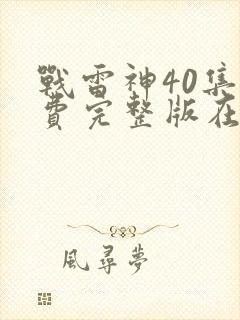 戰雷神40集
費完整版在
風尋夢